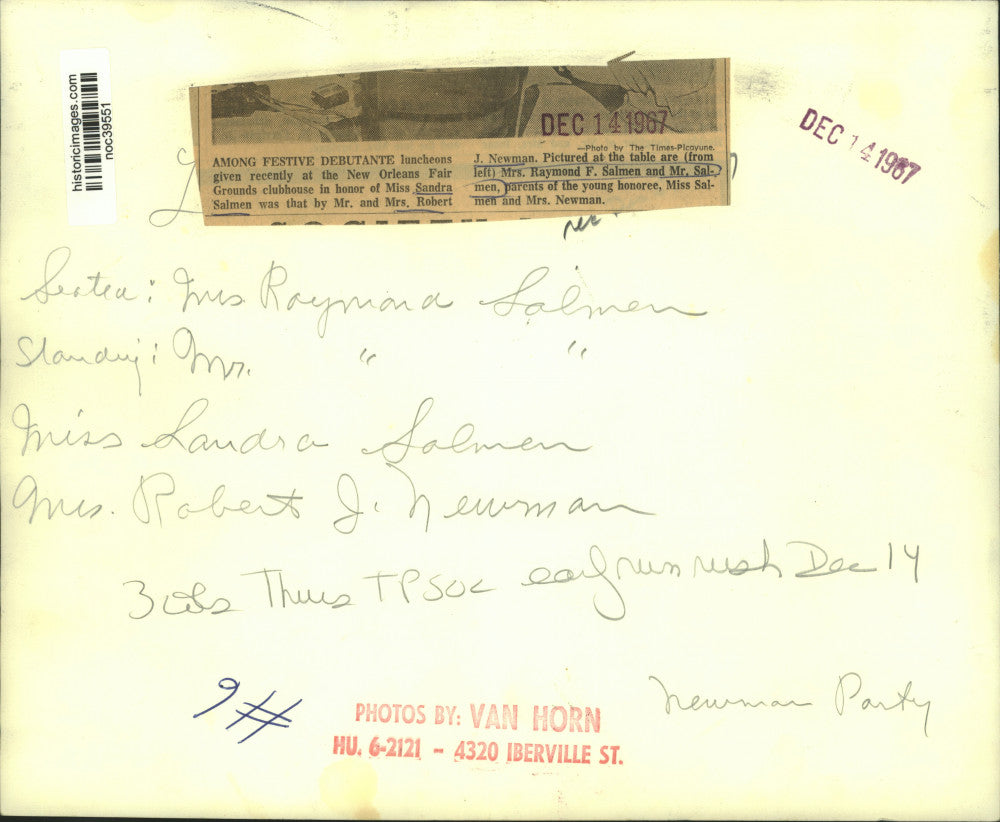 historicimages.com
noc39551
DEC 14 1967
DEC 14 1967
—Photo by The Times-Picayune.
AMONG FESTIVE DEBUTANTE luncheons
given recently at the New Orleans Fair
Grounds clubhouse in honor of Miss Sandra
Salmen was that by Mr. and Mrs. Robert
J. Newman. Pictured at the table are (from
left) Mrs. Raymond F. Salmen and Mr. Sal-
men, parents of the young honoree, Miss Sal-
men and Mrs. Newman.
Seated: Mrs Raymond Salmen
Standing: Mr. " "
Miss Sandra Salmen
Mrs. Robert J. Newman
3 cols Thurs TP Soc early run rush Dec 14
9#
Newman Party
PHOTOS BY: VAN HORN
HU. 6-2121 - 4320 IBERVILLE ST.